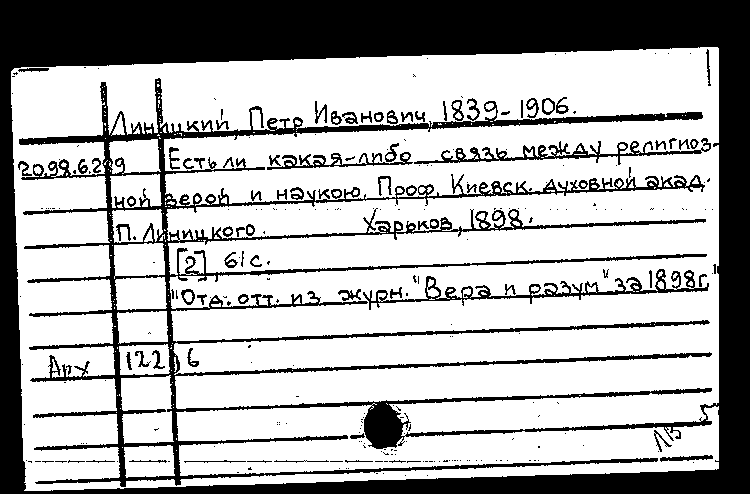 Линицкий, Петр Иванович, 1839-1906.
20.98.6.289 Есть ли какая-либо связь между религиоз-
ной верой и наукою. Проф. Киевск. духовной акад.
П. Линицкого. Харьков, 1898.
[2], 61с.
"Отд. отт. из журн. "Вера и разум" за 1898г."
Арх 122 6